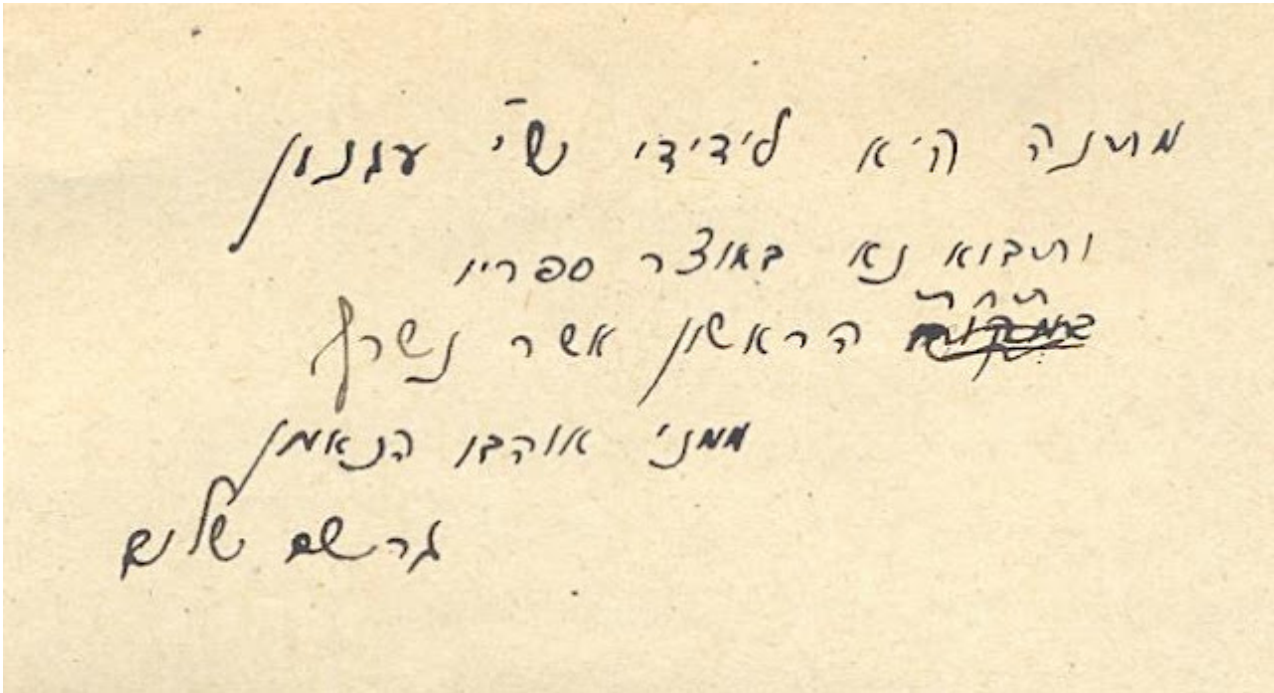 מתנה היא לידידי ש״י עגנון
ותבוא נא באוצר ספריו
תחת הראשון אשר נשרף
ממני אוהבו הנאמן
גרשם שלום